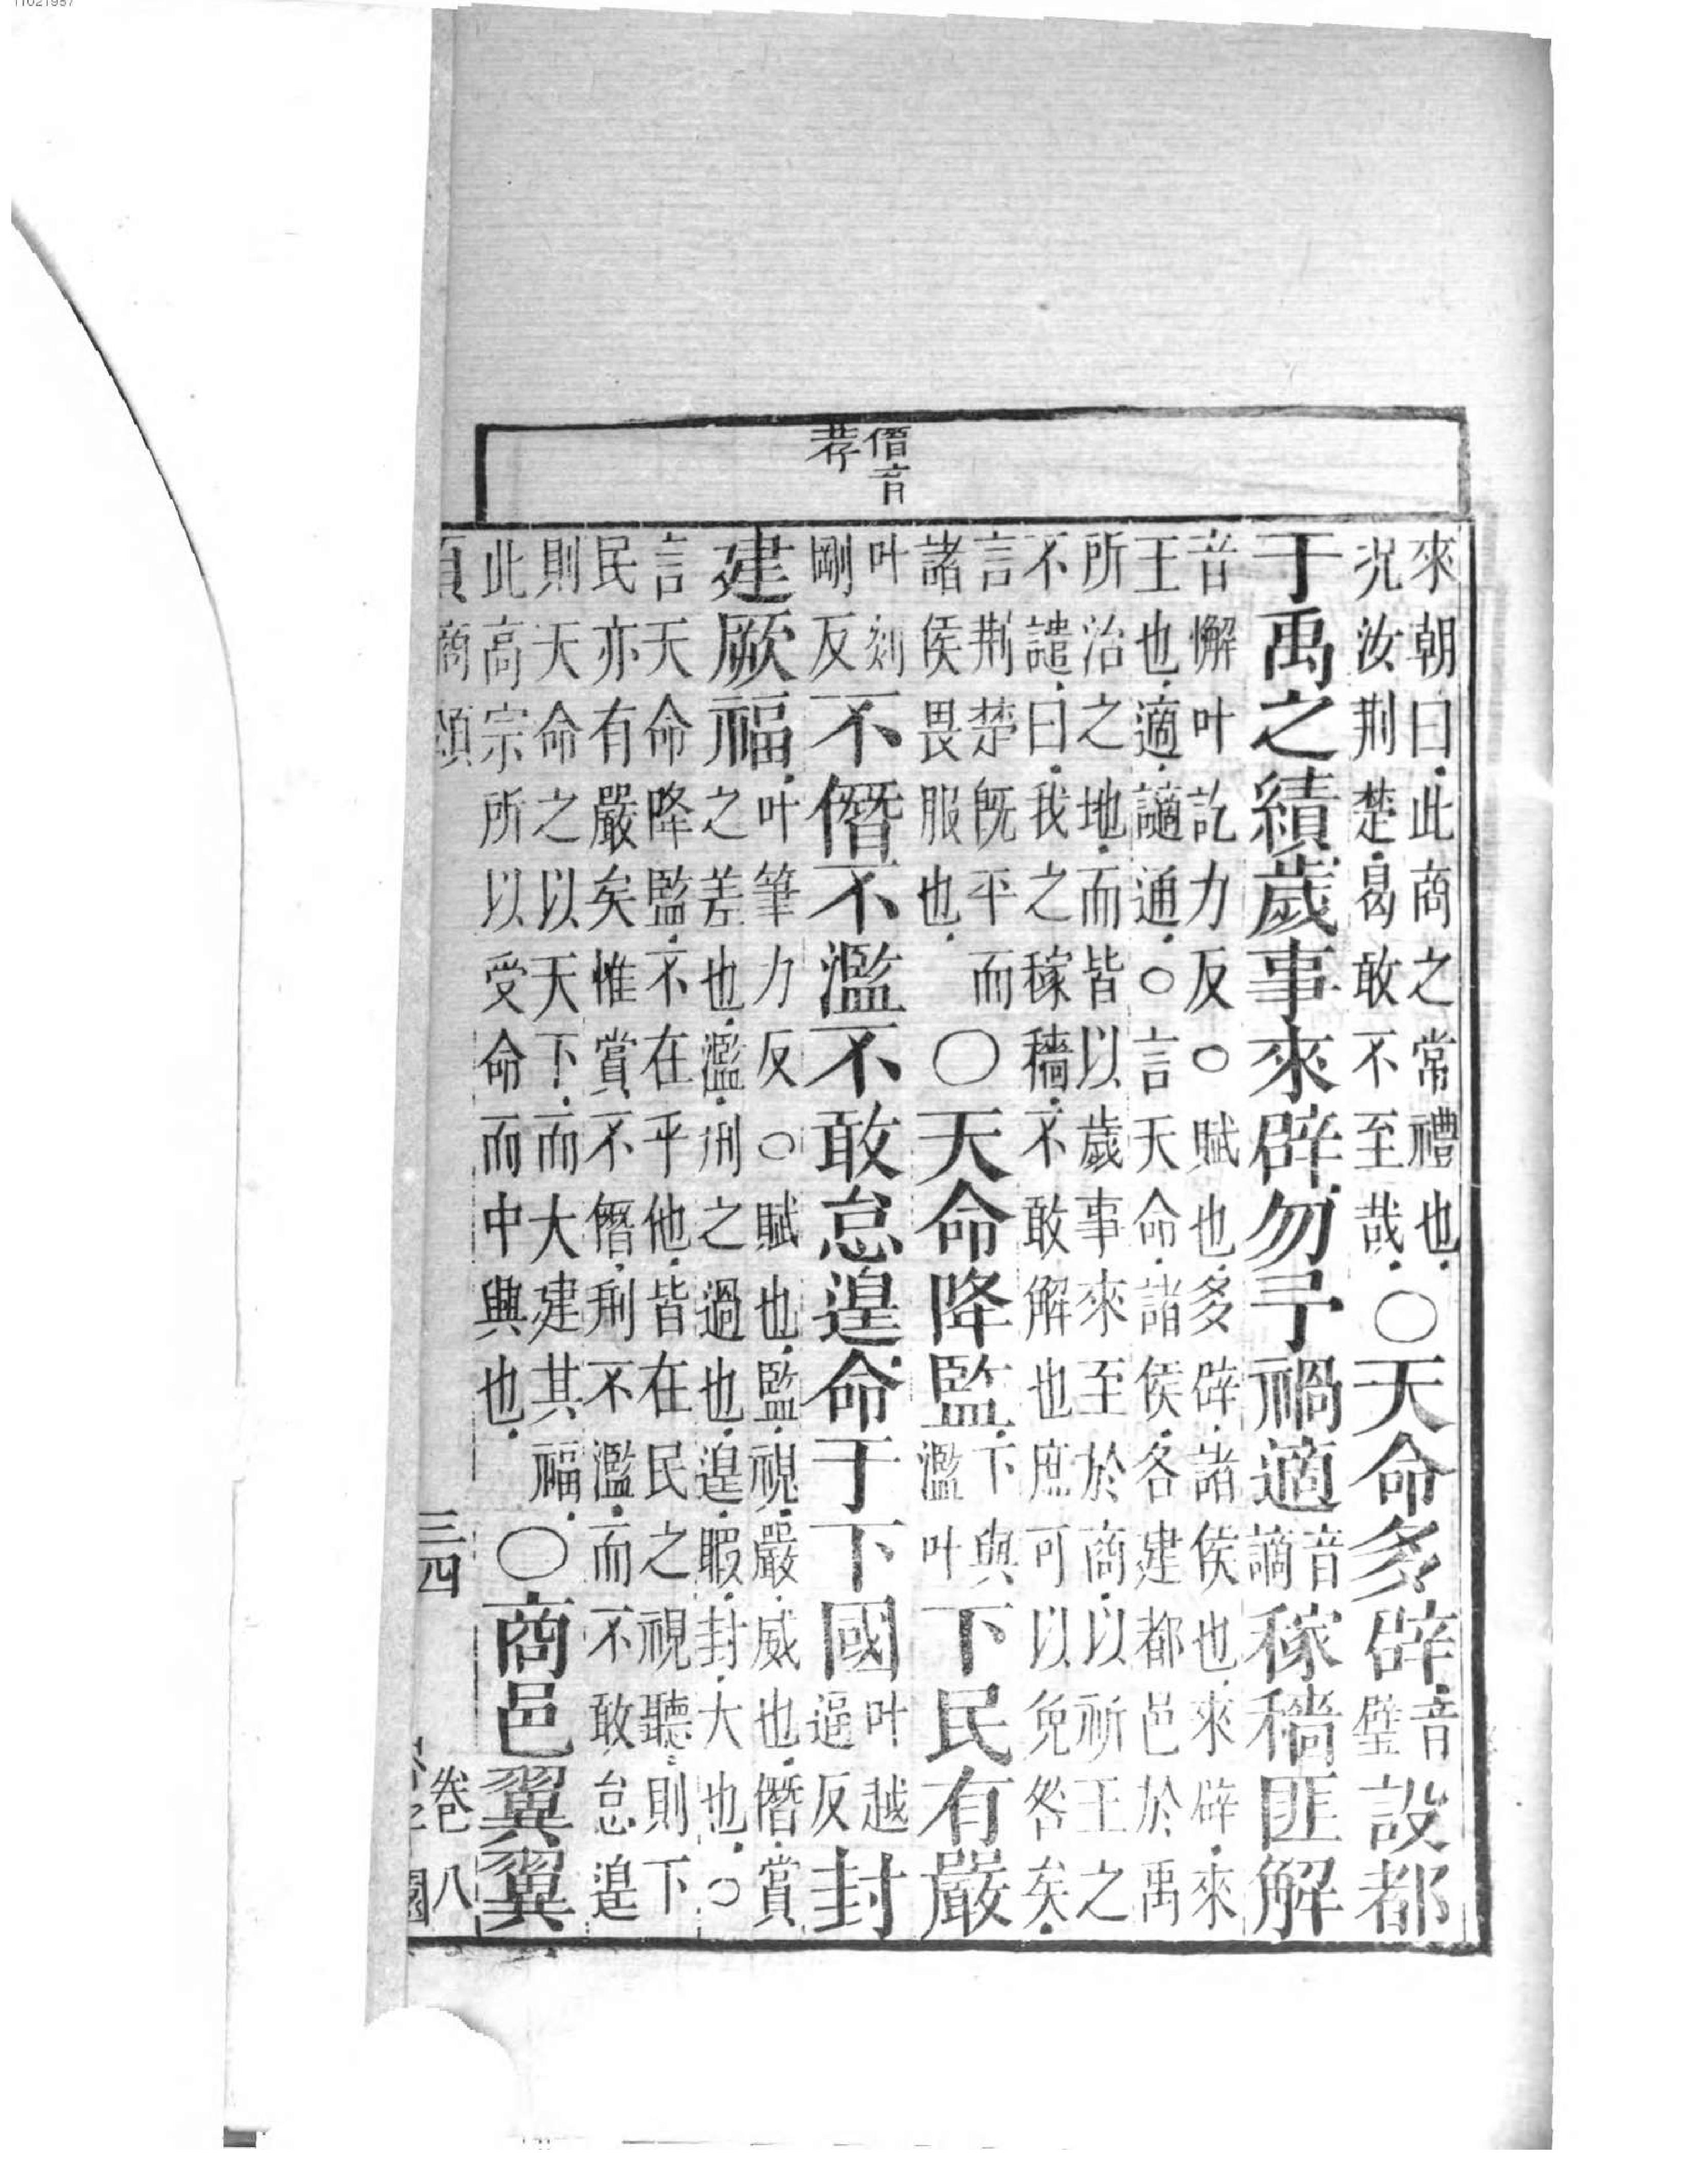 僭音
荐
來朝曰此商之常禮也
況汝荊楚曷敢不至哉
○天命多辟
音
璧
設都
于禹之績歲事來辟勿予禍適
音
謫
稼穡匪解
音懈叶訖力反○賦也多辟諸侯也來辟來
王也適謫通○言天命諸侯各建都邑於禹
所治之地而皆以歲事來至於商以祈王之
不譴曰我之稼穡不敢解也庶可以免咎矣
言荊楚既平而
諸侯畏服也
○天命降監
下與
濫叶
下民有嚴
叶剡
剛反
不僭不濫不敢怠遑命于下國
叶越
逼反
封
建厥福
叶筆力反○賦也監視嚴威也僭賞
之差也濫刑之過也遑暇封大也○
言天命降監不在乎他皆在民之視聽則下
民亦有嚴矣惟賞不僭刑不濫而不敢怠遑
則天命之以天下而大建其福
此高宗所以受命而中興也
○商邑翼翼
商頌
三四
卷八